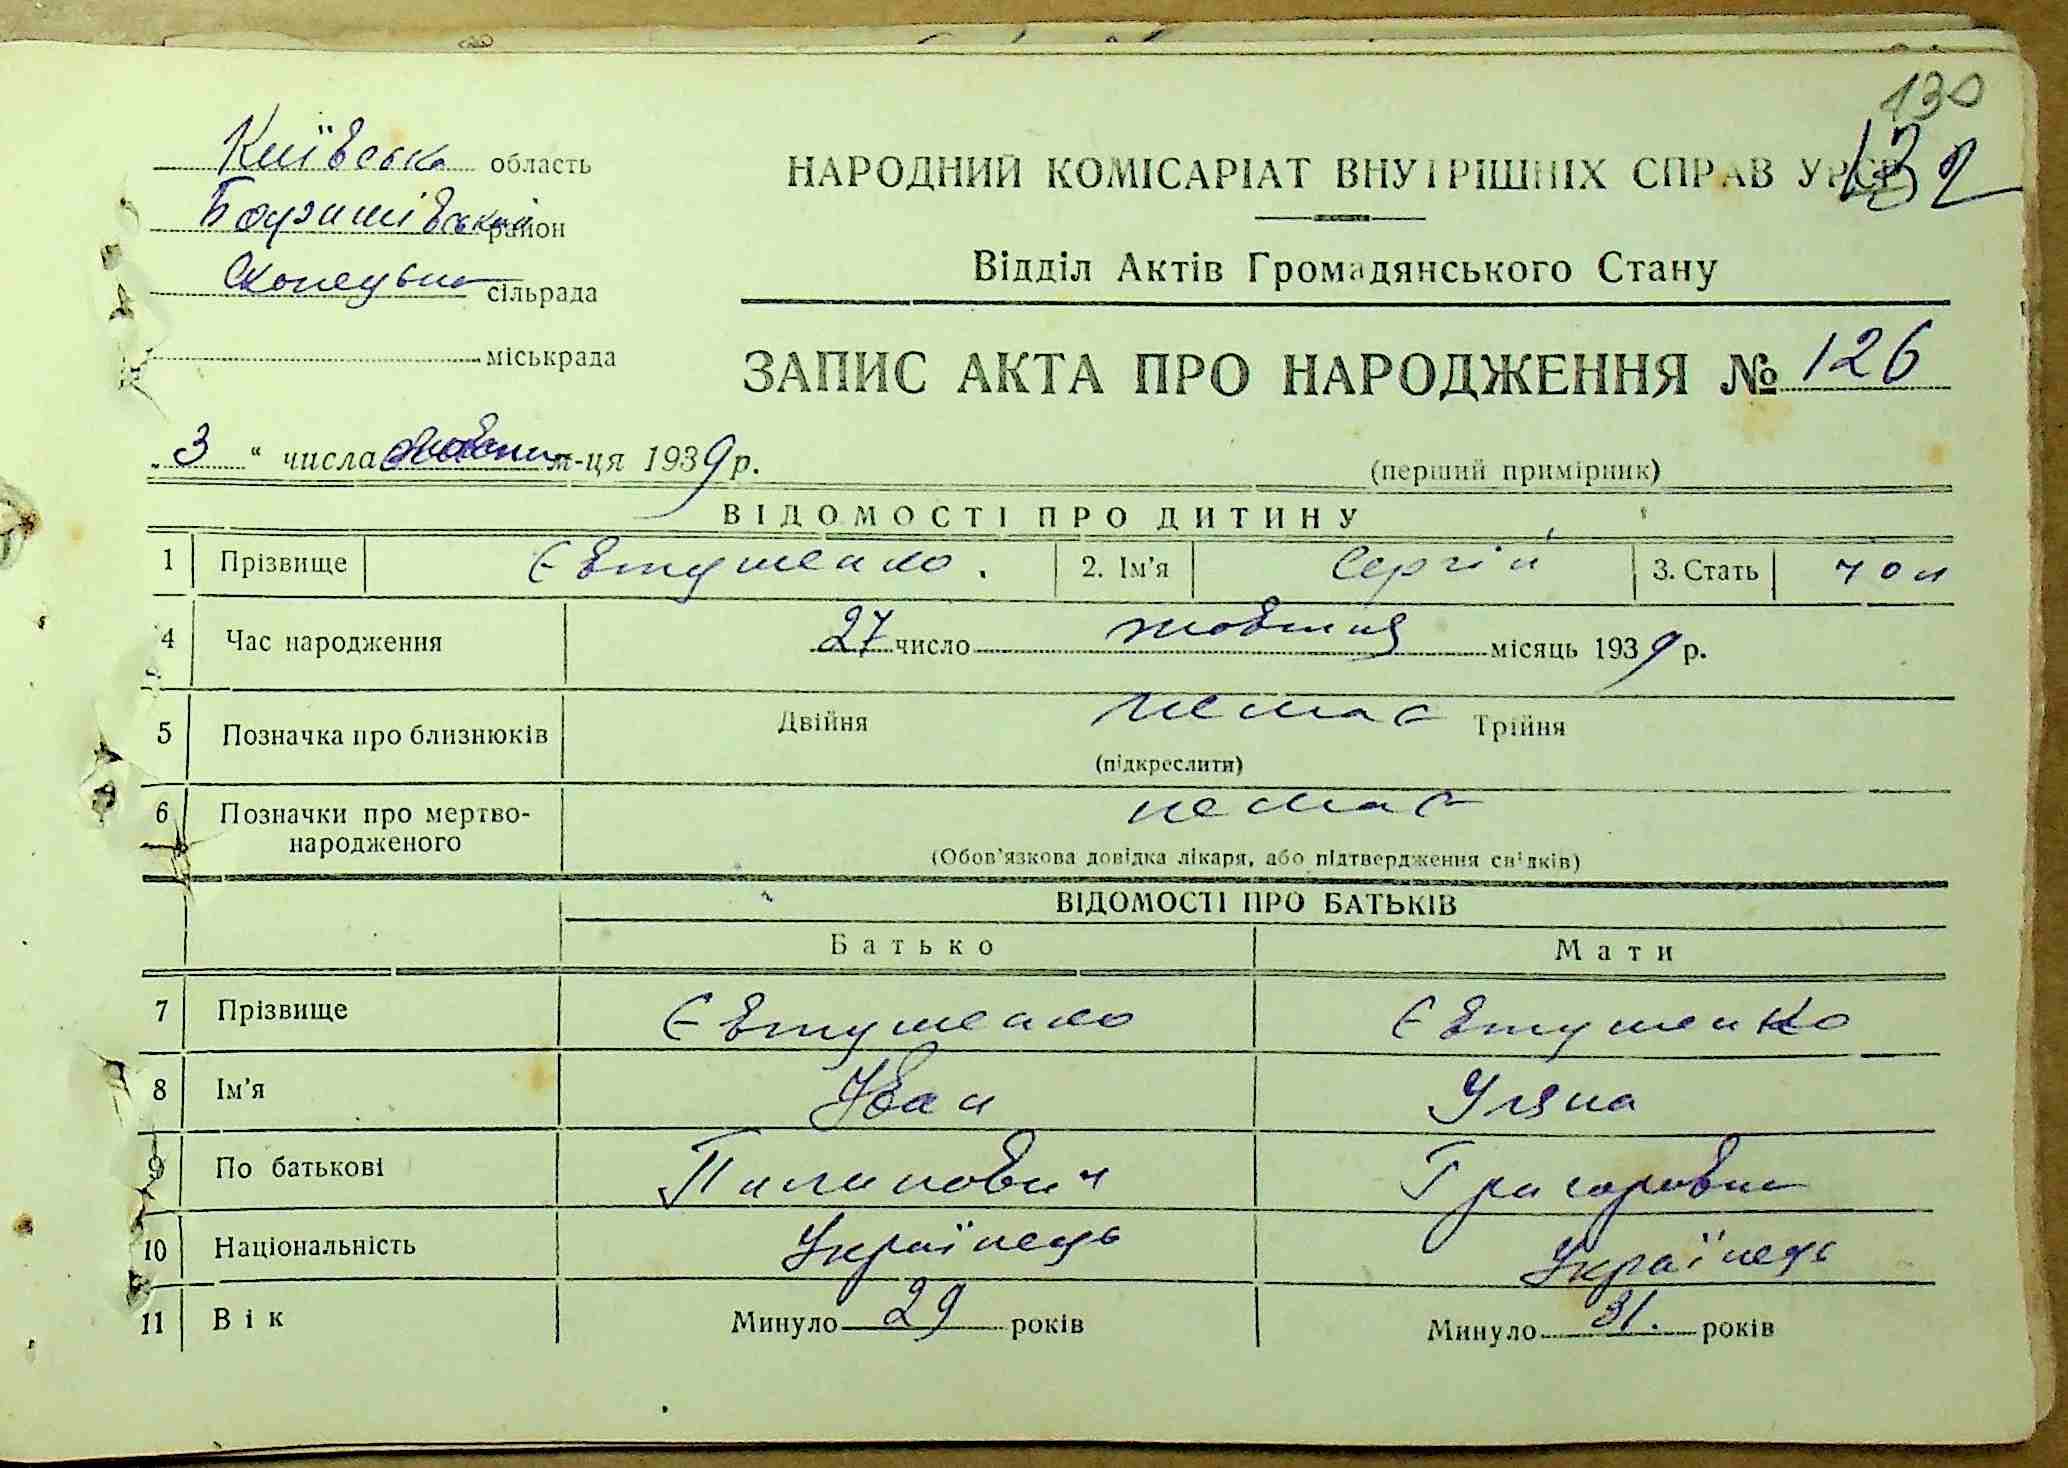 130
132
Київська область
НАРОДНИЙ КОМІСАРІАТ ВНУТРІШНІХ СПРАВ УРСР
район
Відділ Актів Громадянського Стану
сільрада
міськрада
ЗАПИС АКТА ПРО НАРОДЖЕННЯ № 126
„3“ числа м-ця 1939 р.
(перший примірник)
ВІДОМОСТІ ПРО ДИТИНУ
1 Прізвище Євтушенко. 2. Ім'я Сергій 3. Стать чол
4 Час народження 27 число жовтня місяць 1939 р.
5 Позначка про близнюків Двійня немає Трійня
(підкреслити)
6 Позначки про мертво- немає
народженого
(Обов'язкова довідка лікаря, або підтвердження свідків)
ВІДОМОСТІ ПРО БАТЬКІВ
Батько Мати
7 Прізвище Євтушенко Євтушенко
8 Ім'я Іван Уляна
9 По батькові Пилипович Григоровна
10 Національність Українець Українець
11 Вік Минуло 29 років Минуло 31. років